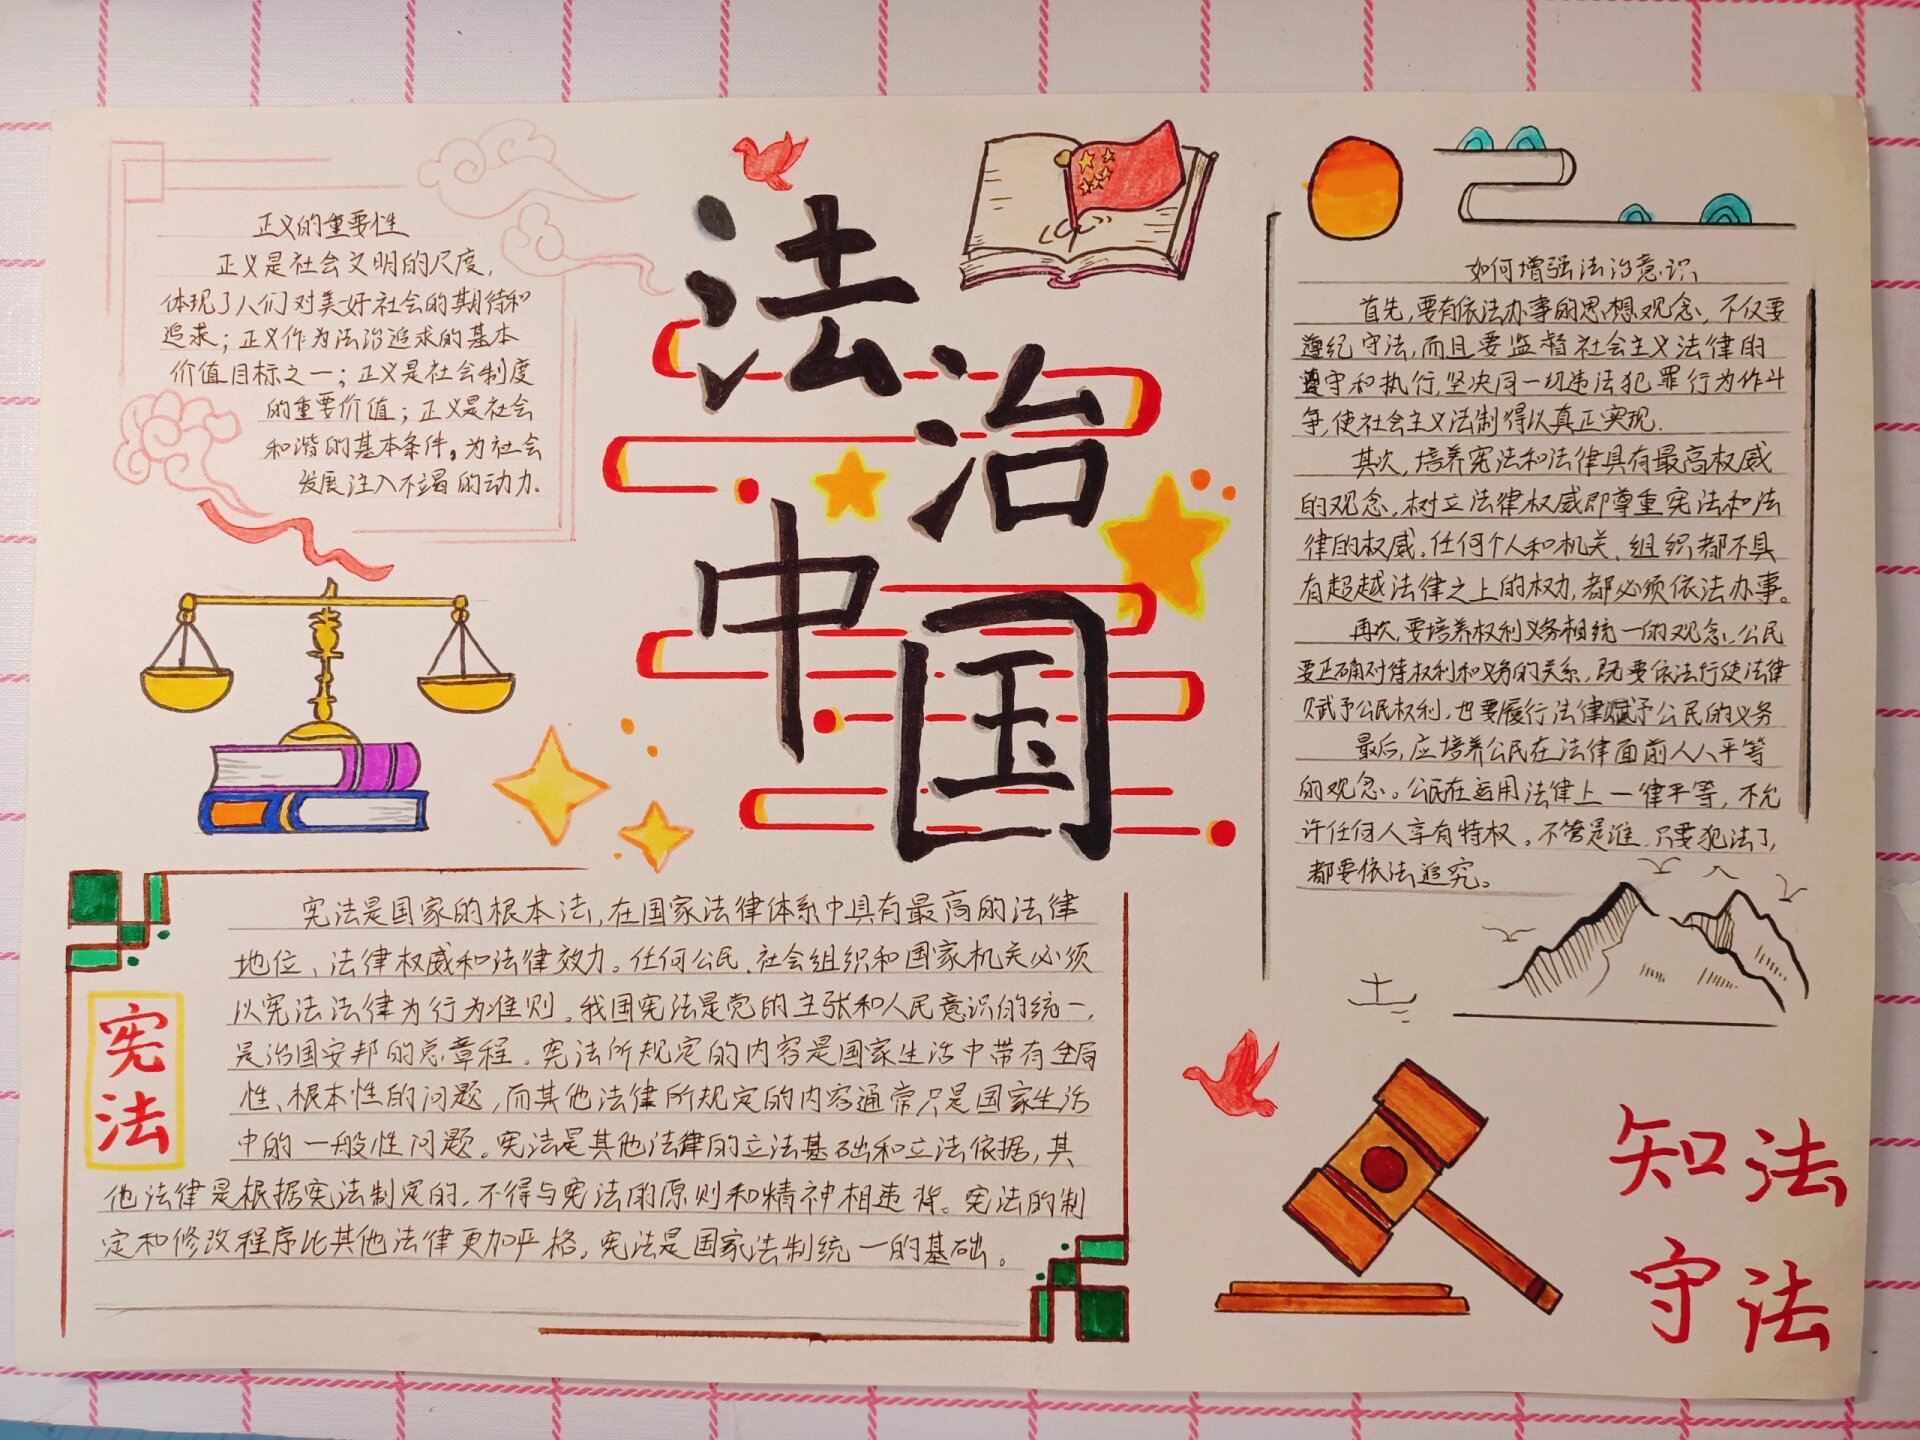 法治
中国
正义的重要性
正义是社会文明的尺度，
体现了人们对美好社会的期待和
追求；正义作为法治追求的基本
价值目标之一；正义是社会制度
的重要价值；正义是社会
和谐的基本条件，为社会
发展注入不竭的动力.
宪法
宪法是国家的根本法，在国家法律体系中具有最高的法律
地位、法律权威和法律效力。任何公民、社会组织和国家机关必须
以宪法法律为行为准则。我国宪法是党的主张和人民意识的统一，
是治国安邦的总章程。宪法所规定的内容是国家生活中带有全局
性、根本性的问题，而其他法律所规定的内容通常只是国家生活
中的一般性问题。宪法是其他法律的立法基础和立法依据，其
他法律是根据宪法制定的，不得与宪法的原则和精神相违背。宪法的制
定和修改程序比其他法律更加严格，宪法是国家法制统一的基础。
如何增强法治意识
首先，要有依法办事的思想观念，不仅要
遵纪守法，而且要监督社会主义法律的
遵守和执行，坚决同一切违法犯罪行为作斗
争，使社会主义法制得以真正实现.
其次，培养宪法和法律具有最高权威
的观念，树立法律权威即尊重宪法和法
律的权威，任何个人和机关、组织都不具
有超越法律之上的权力，都必须依法办事。
再次，要培养权利义务相统一的观念、公民
要正确对待权利和义务的关系，既要依法行使法律
赋予公民权利，也要履行法律赋予公民的义务
最后，应培养公民在法律面前人人平等
的观念。公民在运用法律上一律平等，不允
许任何人享有特权。不管是谁，只要犯法了，
都要依法追究。
知法
守法